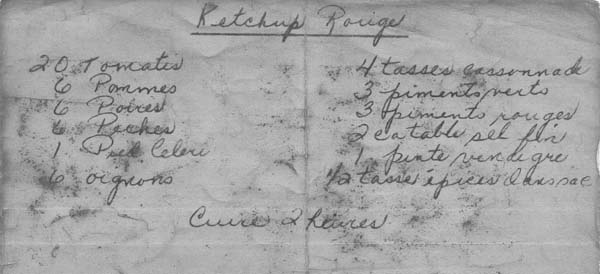 Ketchup Rouge
20 Tomates
6 Pommes
6 Poires
6 Peches
1 Pied Celeri
6 oignons
4 tasses cassonnade
3 piments verts
3 piments rouges
2 c a table sel fin
1 pinte vinaigre
1/2 tasse épices dans sac
Cuire 2 heures